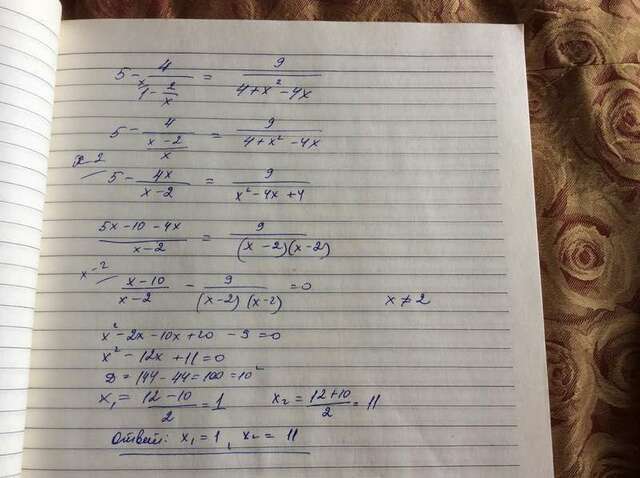 5 - 4/(1 - 2/x) = 9/(4 + x² - 4x)
5 - 4/((x-2)/x) = 9/(4 + x² - 4x)
5 - 4x/(x-2) = 9/(x² - 4x + 4)
(5x - 10 - 4x)/(x-2) = 9/((x-2)(x-2))
x-2
(x-10)/(x-2) - 9/((x-2)(x-2)) = 0 x ≠ 2
x² - 2x - 10x + 20 - 9 = 0
x² - 12x + 11 = 0
D = 144 - 44 = 100 = 10²
x₁ = (12-10)/2 = 1 x₂ = (12+10)/2 = 11
Ответ: x₁ = 1, x₂ = 11